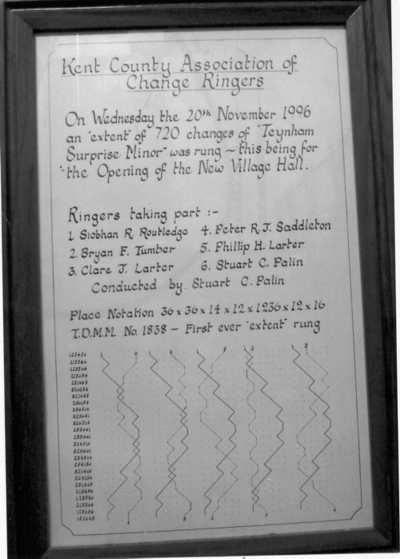 Kent County Association of
Change Ringers
On Wednesday the 20th November 1996
an "extent" of 720 changes of "Teynham
Surprise Minor" was rung ~ this being for
the Opening of the New Village Hall.
Ringers taking part :-
1. Siobhan R. Routledge 4. Peter R. J. Saddleton
2. Bryan F. Tumber 5. Phillip H. Larter
3. Clare J. Larter 6. Stuart C. Palin
Conducted by Stuart C. Palin
Place Notation 36 x 36 x 14 x 12 x 1236 x 12 x 16
T.D.M.M. No. 1838 – First ever "extent" rung